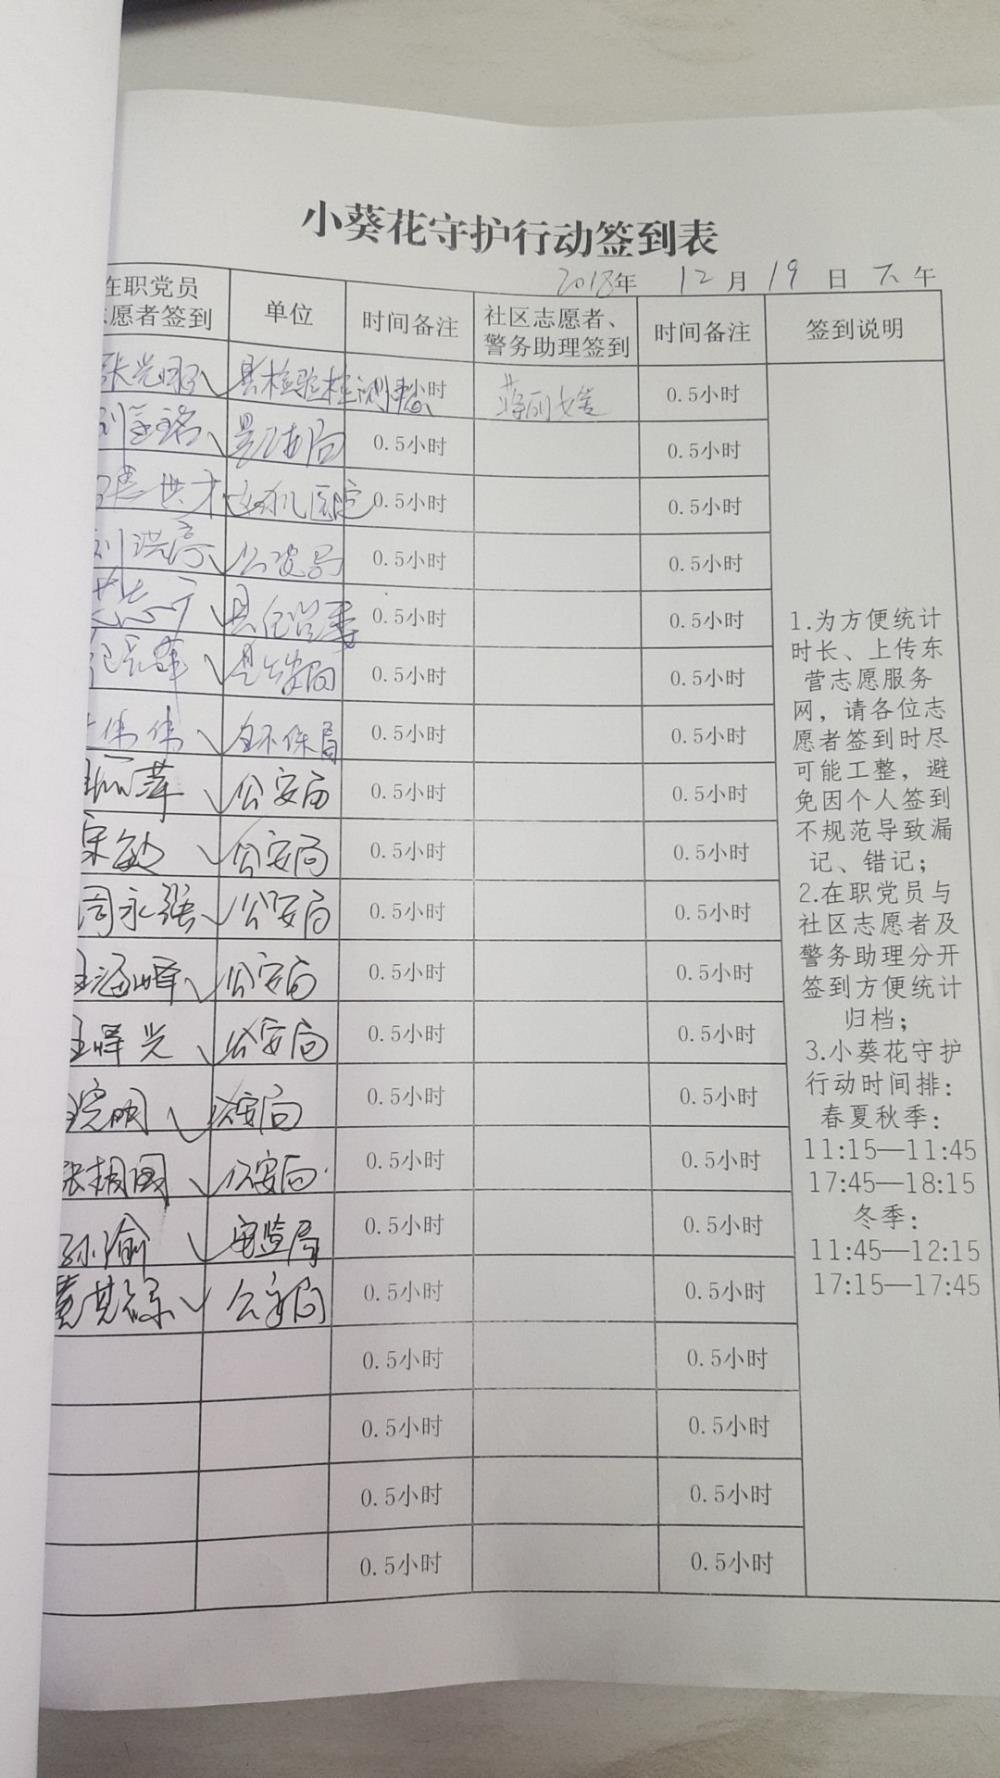 小葵花守护行动签到表
2018年 12月 19日 下午
在职党员 志愿者签到 单位 时间备注 社区志愿者、警务助理签到 时间备注 签到说明
0.5小时
0.5小时 0.5小时
妇幼医院 0.5小时 0.5小时
刘洪亭 公安局 0.5小时 0.5小时
0.5小时 0.5小时
0.5小时 0.5小时
伟伟 环保局 0.5小时 0.5小时
公安局 0.5小时 0.5小时
宋敏 公安局 0.5小时 0.5小时
周永强 公安局 0.5小时 0.5小时
王海峰 公安局 0.5小时 0.5小时
公安局 0.5小时 0.5小时
公安局 0.5小时 0.5小时
张相国 公安局 0.5小时 0.5小时
安监局 0.5小时 0.5小时
公安局 0.5小时 0.5小时
0.5小时 0.5小时
0.5小时 0.5小时
0.5小时 0.5小时
0.5小时 0.5小时
1.为方便统计
时长、上传东
营志愿服务
网，请各位志
愿者签到时尽
可能工整，避
免因个人签到
不规范导致漏
记、错记；
2.在职党员与
社区志愿者及
警务助理分开
签到方便统计
归档；
3.小葵花守护
行动时间排：
春夏秋季：
11:15—11:45
17:45—18:15
冬季：
11:45—12:15
17:15—17:45